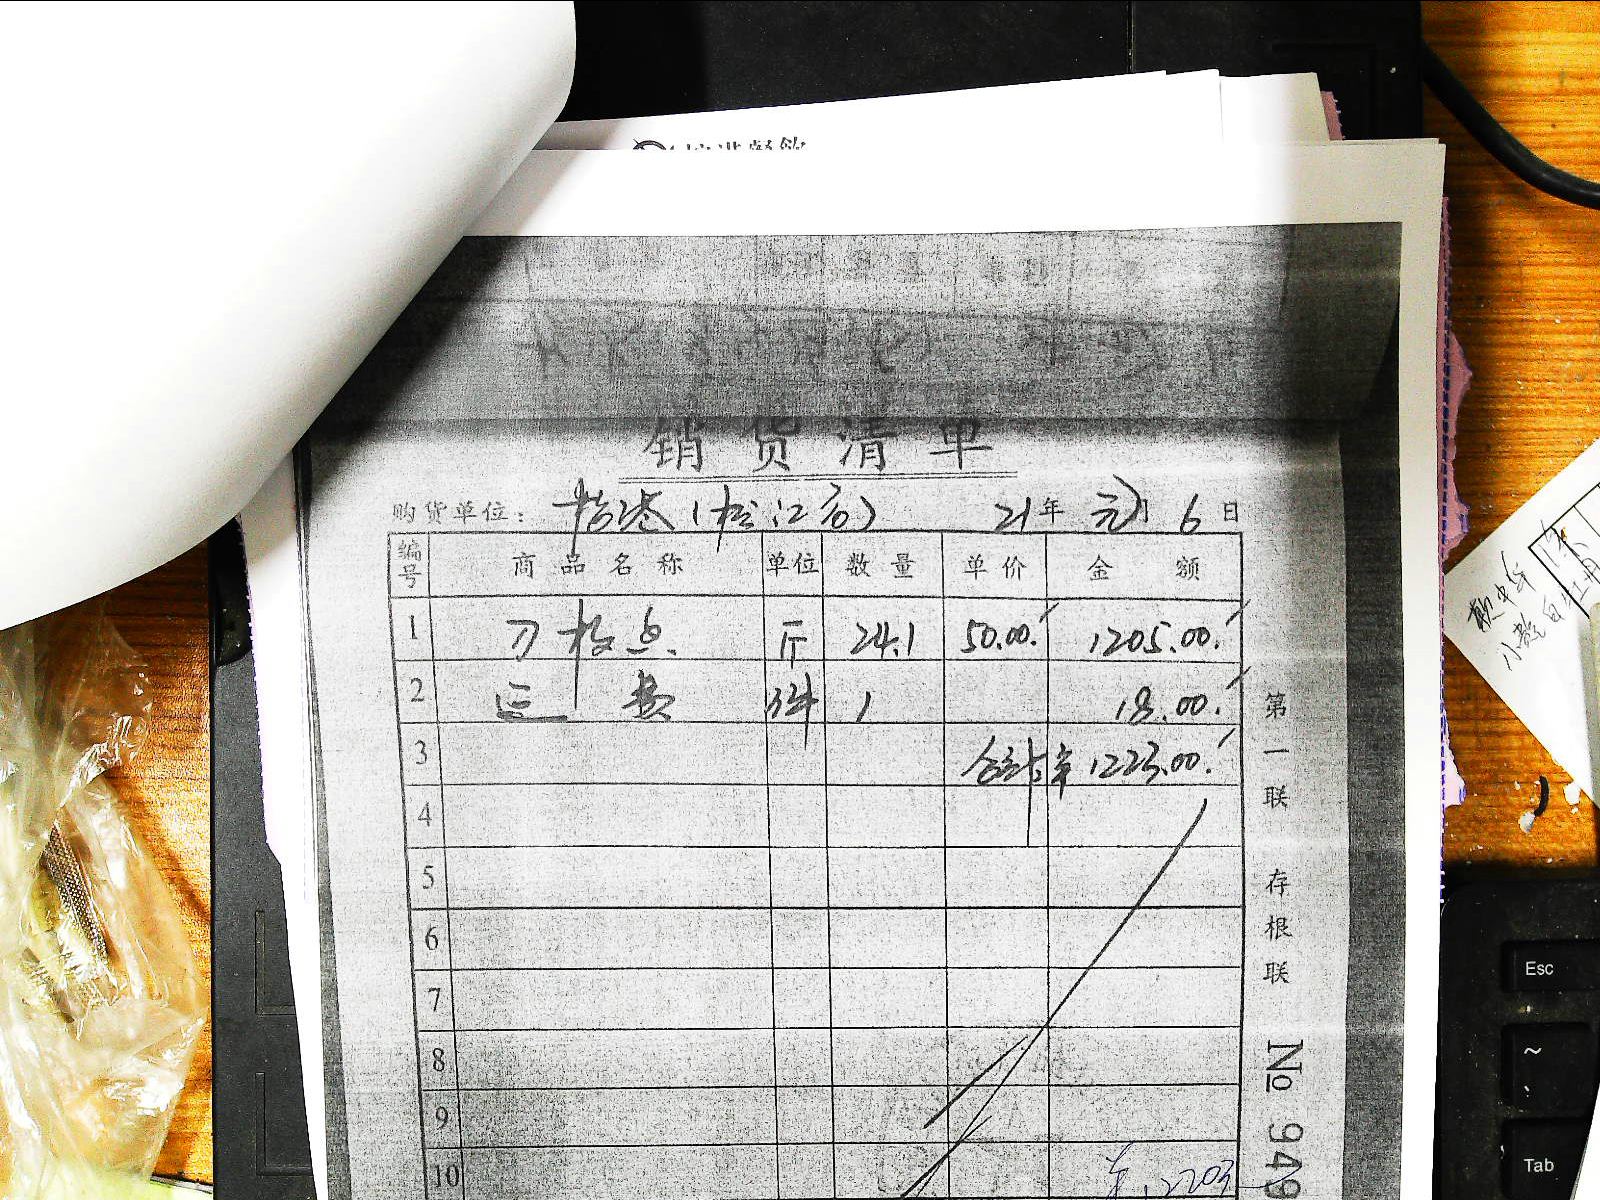 销货清单
购货单位: 21年元月6日
编号 商品名称 单位 数量 单价 金额
1 刀板鱼 斤 24.1 50.00 1205.00
2 运费 件 1 18.00
3 合计 1223.00
4
5
6
7
8
9
10
第一联 存根联 № 949
Esc
~
Tab